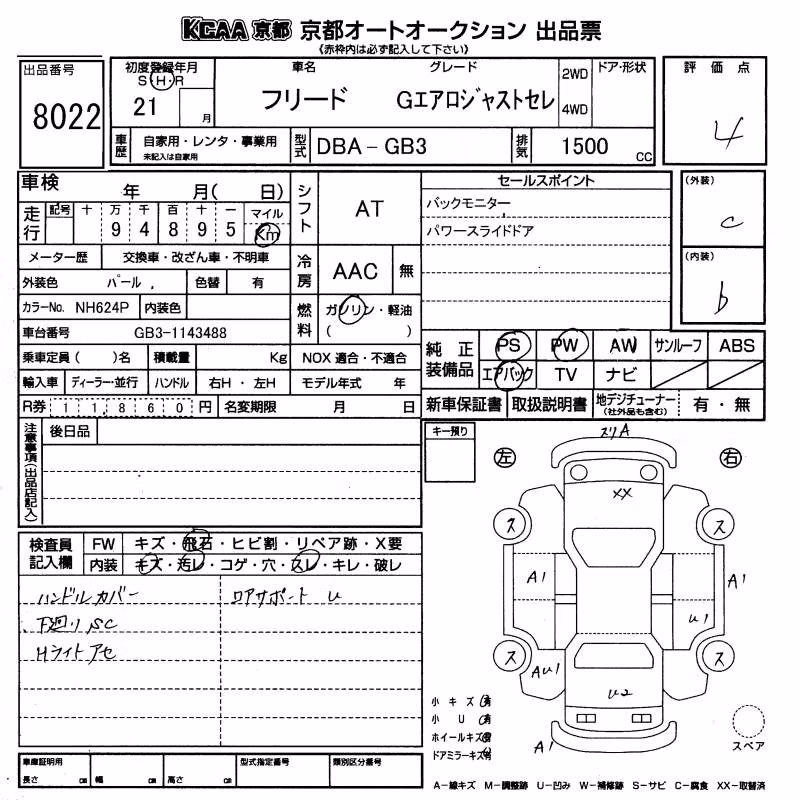 KCAA 京都 京都オートオークション 出品票
《赤枠内は必ず記入して下さい》
出品番号
8022
初度登録年月
S・H・R
21 月
車名
フリード
グレード
Gエアロジャストセレ
2WD
4WD
ドア・形状
評価点
4
車歴
自家用・レンタ・事業用
未記入は自家用
型式
DBA－GB3
排気
1500 cc
車検 年 月( 日)
走行
記号 十 万 千 百 十 一 マイル
9 4 8 9 5 Km
シフト
AT
メーター歴 交換車・改ざん車・不明車
冷房
AAC 無
外装色 パール 色替 有
カラーNo. NH624P 内装色
燃料
ガソリン・軽油
( )
車台番号 GB3-1143488
乗車定員( )名 積載量 Kg NOX 適合・不適合
輸入車 ディーラー・並行 ハンドル 右H・左H モデル年式 年
R券 11,860円 名変期限 月 日
セールスポイント
バックモニター
パワースライドドア
(外装)
c
(内装)
b
純正装備品
PS PW AW サンルーフ ABS
エアバック TV ナビ
新車保証書 取扱説明書 地デジチューナー(社外品も含む) 有・無
注意事項(出品店記入)
後日品
キー預り
検査員記入欄
FW キズ・飛石・ヒビ割・リペア跡・X要
内装 キズ・汚レ・コゲ・穴・スレ・キレ・破レ
ハンドルカバー
下廻りSC
Hライトアセ
ロアサポート U
左
右
スリA
XX
ス
ス
A1
A1
U1
ス
ス
AU1
U2
A1
小キズ有
小U有
ホイールキズ有
ドアミラーキズ有
スペア
車庫証明用
長さ cm 幅 cm 高さ cm
型式指定番号
類別区分番号
A－線キズ M－調整跡 U－凹み W－補修跡 S－サビ C－腐食 XX－取替済